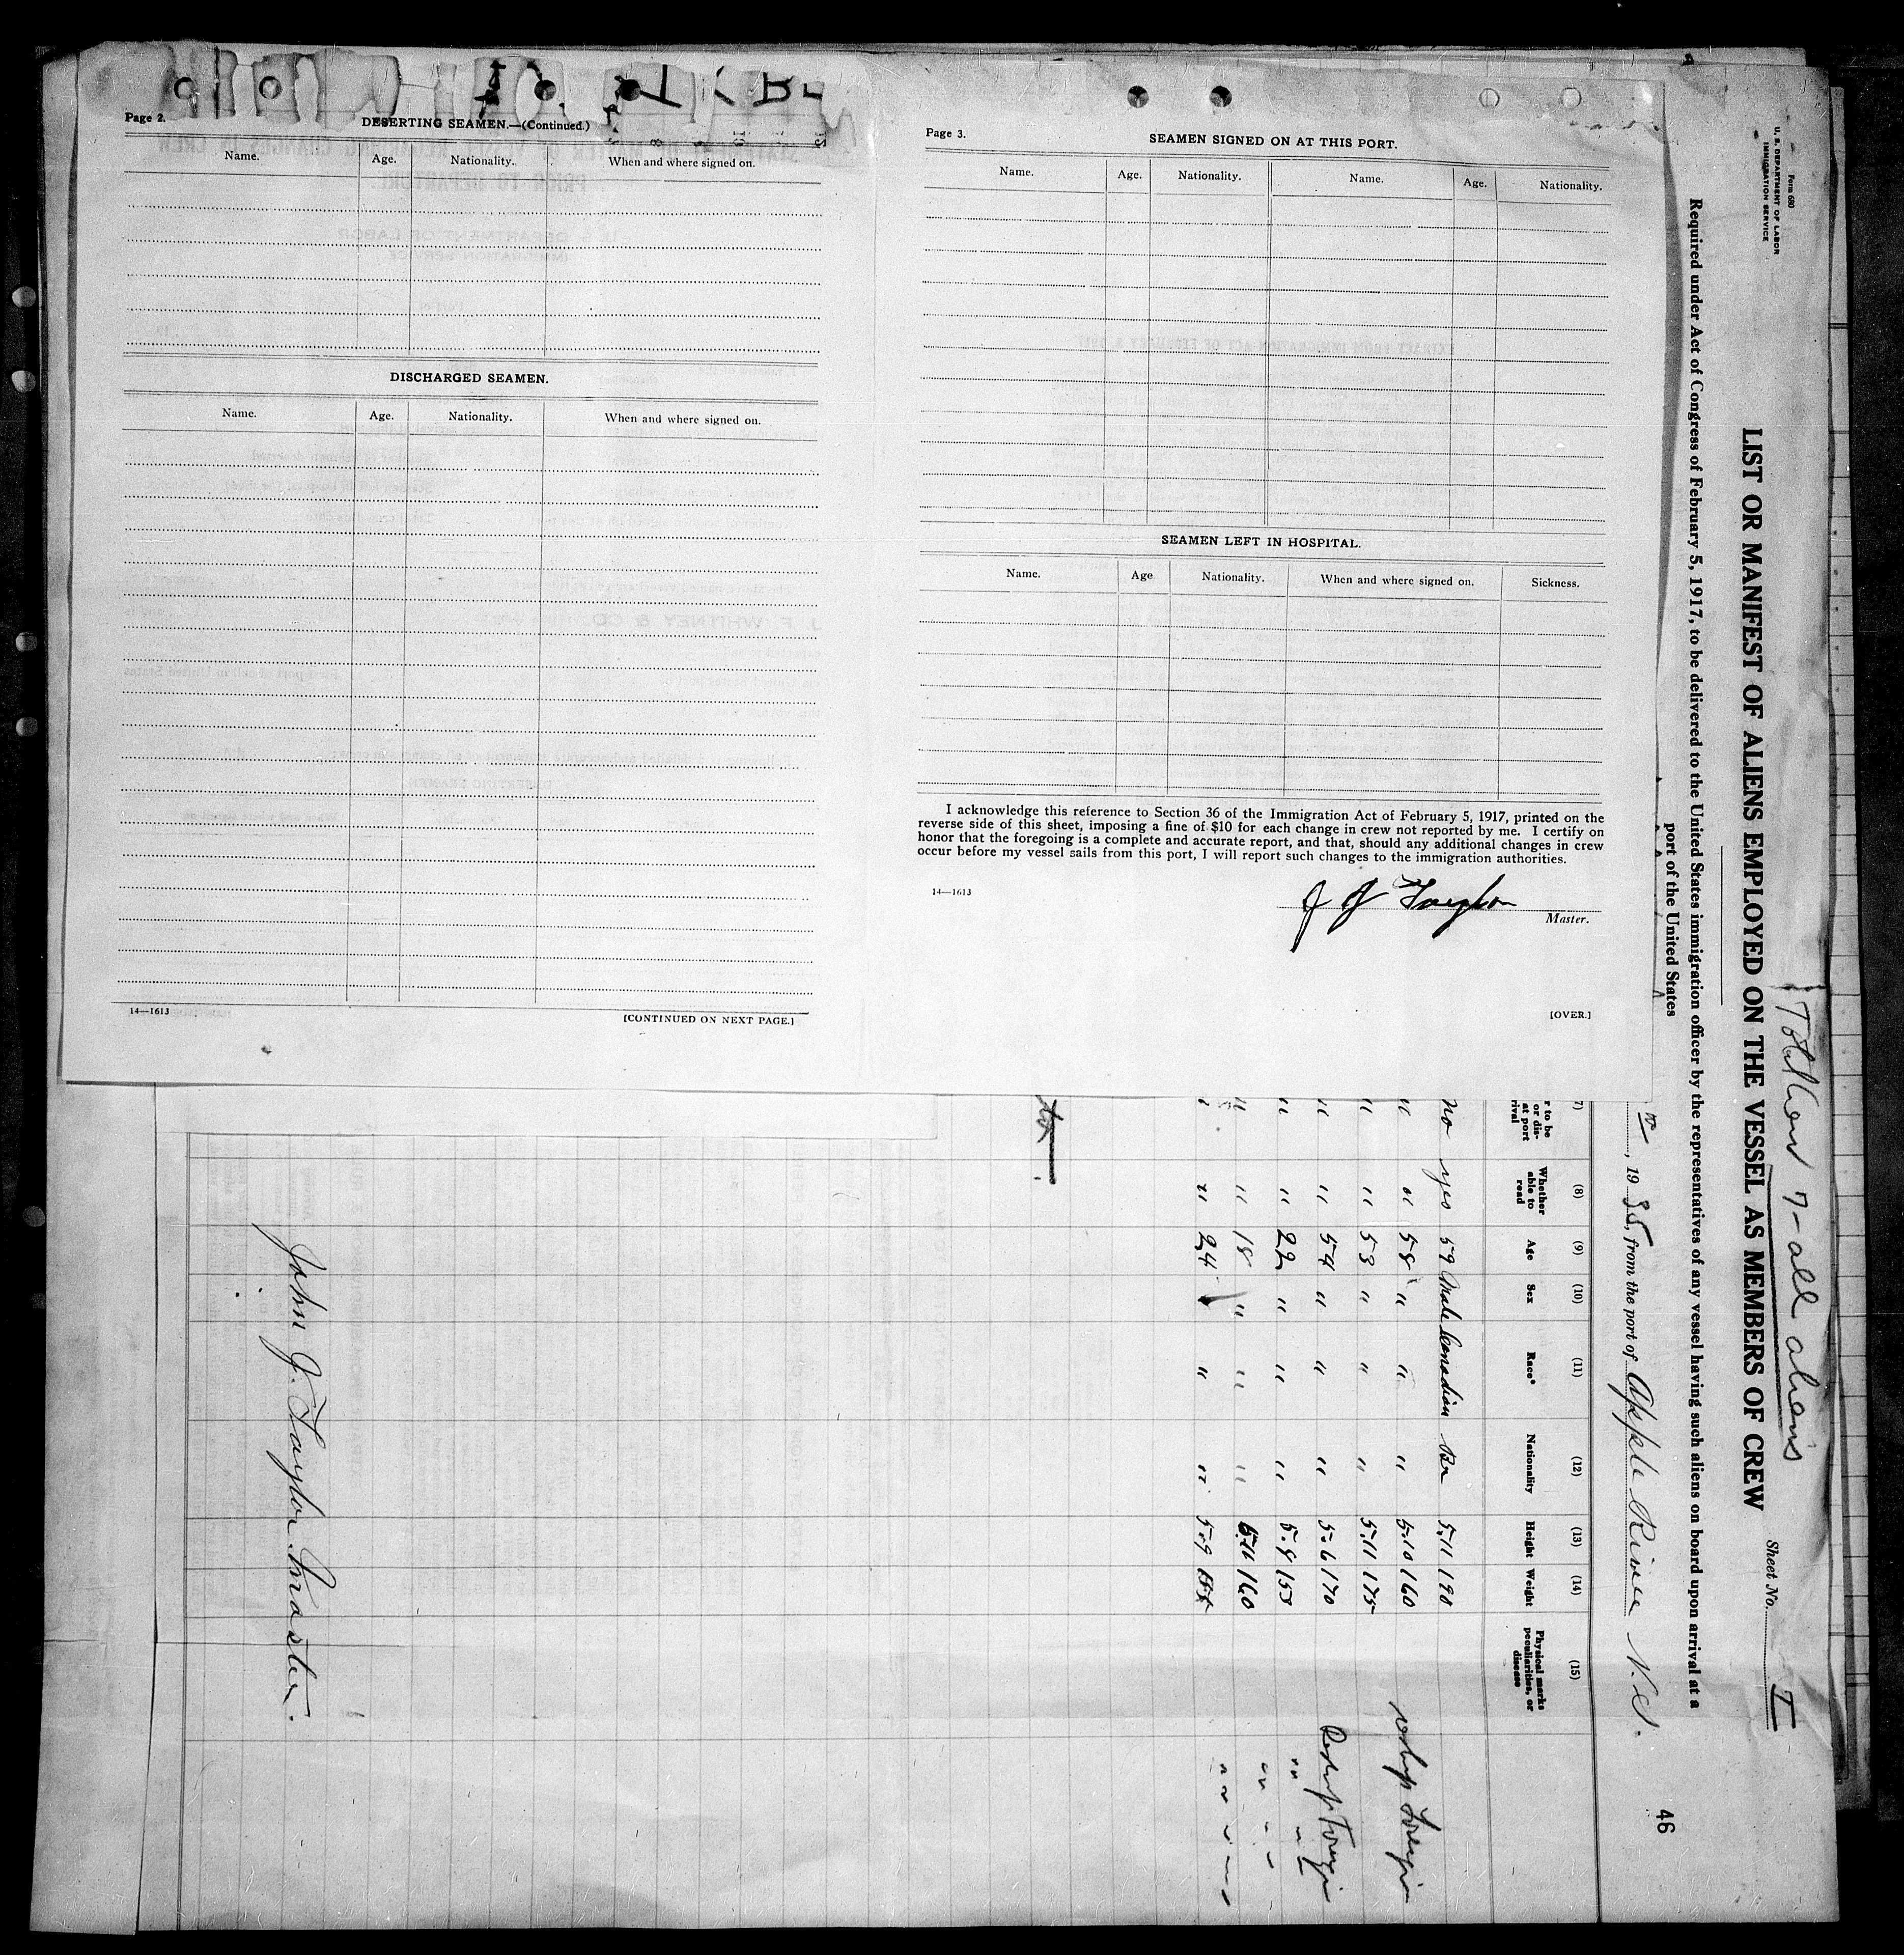 Page 2.
DESERTING SEAMEN.—(Continued.)
Name. Age. Nationality. When and where signed on.
DISCHARGED SEAMEN.
Name. Age. Nationality. When and where signed on.
14—1613
[CONTINUED ON NEXT PAGE.]
Page 3.
SEAMEN SIGNED ON AT THIS PORT.
Name. Age. Nationality. Name. Age. Nationality.
SEAMEN LEFT IN HOSPITAL.
Name. Age Nationality. When and where signed on. Sickness.
I acknowledge this reference to Section 36 of the Immigration Act of February 5, 1917, printed on the
reverse side of this sheet, imposing a fine of $10 for each change in crew not reported by me. I certify on
honor that the foregoing is a complete and accurate report, and that, should any additional changes in crew
occur before my vessel sails from this port, I will report such changes to the immigration authorities.
14—1613
J J Taylor
Master.
[OVER.]
Total Crew 7 - all aliens
Form 680
U. S. DEPARTMENT OF LABOR
IMMIGRATION SERVICE
Sheet No. 1
LIST OR MANIFEST OF ALIENS EMPLOYED ON THE VESSEL AS MEMBERS OF CREW
Required under Act of Congress of February 5, 1917, to be delivered to the United States immigration officer by the representatives of any vessel having such aliens on board upon arrival at a
port of the United States
46
, 1935, from the port of Apple River N.S.
(8) (9) (10) (11) (12) (13) (14) (15)
to be or dis- at port
Whether able to read
Age
Sex
Race*
Nationality
Height
Weight
Physical marks, peculiarities, or disease
no yes 59 Male Canadian Br 5.11 190
" " 58 " " " 5.10 160
" " 53 " " " 5.11 175
" " 54 " " " 5.6 170
" " 22 " " " 5.9 153
" " 18 " " " 160
" " 24 " " " 5.9
John J. Taylor. Master.